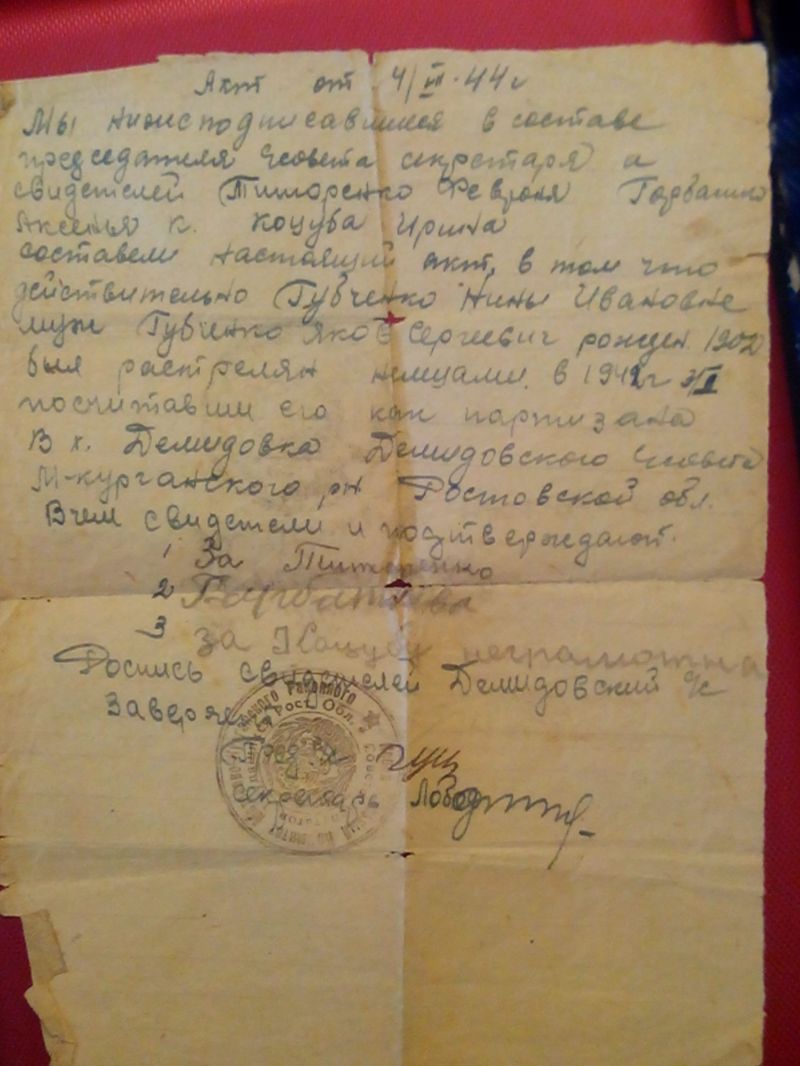 Акт от 4/III-44г
Мы нижеподписавшиеся в составе
председателя с/совета секретаря а
свидетелей Тиморенко Февроня
Аксенья к. Коцуба Ирина
составели настоящий акт, в том что
действительно Губченко Нины Ивановне
муж Губченко Яков Сергеевич рожден 1902
был растрелян немцами в 1942г
посчитавши его как партизана
В х. Демидовка Демидовского с/совета
М-курганского р-н Ростовской обл.
Вчем свидетели и подтверждают.
1 За Тиморенко
2
3 За Коцубу неграмотна
Роспись свидетелей Демидовский с/с
Заверяет
Пред
секретарь
Районного
Рост. Обл.